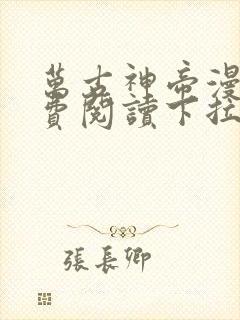 萬古神帝漫
費閱讀下拉
張長卿